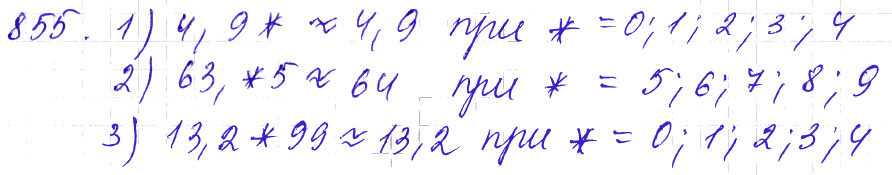 855. 1) 4,9* ≈ 4,9 при * = 0; 1; 2; 3; 4
2) 63,*5 ≈ 64 при * = 5; 6; 7; 8; 9
3) 13,2*99 ≈ 13,2 при * = 0; 1; 2; 3; 4